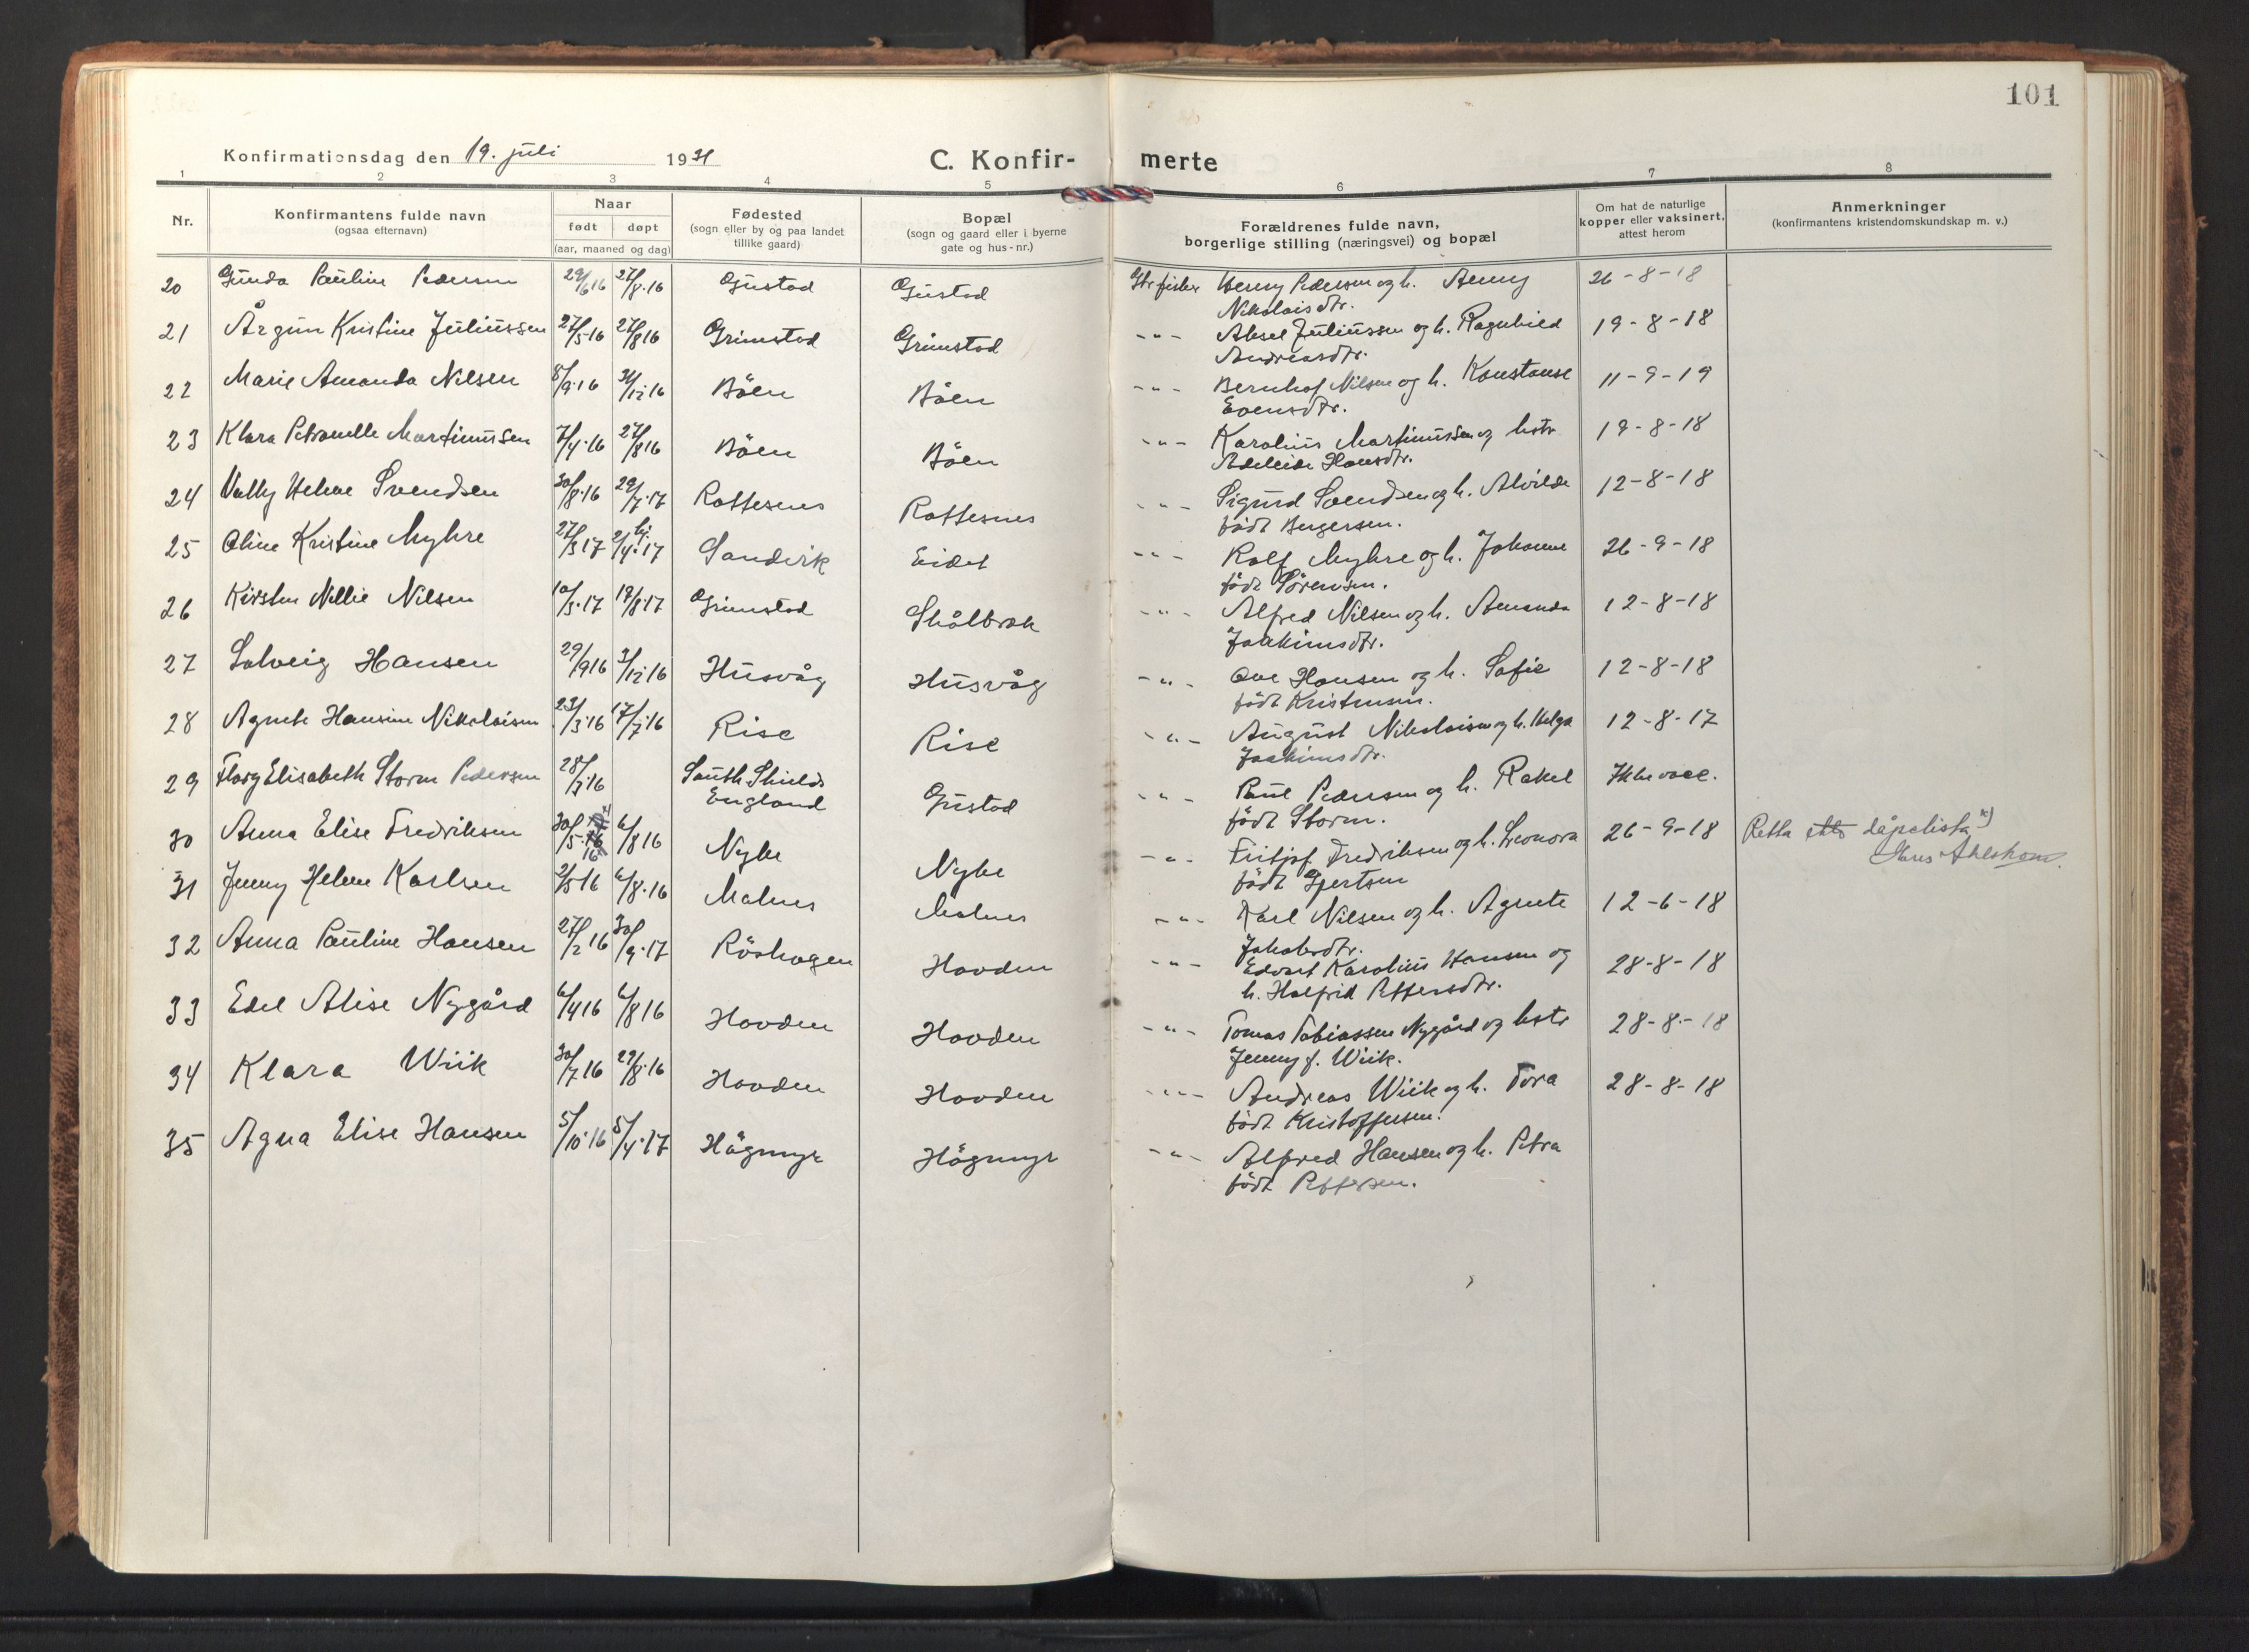 101
Konfirmationsdag den 19. juli 1931 C. Konfir- merte
1 2 3 4 5 6 7 8
Nr.
Konfirmantens fulde navn
(ogsaa efternavn)
Naar
født døpt
(aar, maaned og dag)
Fødested
(sogn eller by og paa landet
tillike gaard)
Bopæl
(sogn og gaard eller i byerne
gate og hus-nr.)
Forældrenes fulde navn,
borgerlige stilling (næringsvei) og bopæl
Om hat de naturlige
kopper eller vaksinert,
attest herom
Anmerkninger
(konfirmantens kristendomskundskap m. v.)
20 Gunda Pauline Pedersen 29/6 16 27/8.16 Gustad Gustad Gbr fisker Henry Pedersen og h. Anny 26-8-18
Nikolaisdtr.
21 Årgun Kristine Juliussen 27/5-16 27/8 16 Grimstad Grimstad -"- Aksel Juliussen og h. Ragnhild 19-8-18
Andreasdtr.
22 Marie Amanda Nilsen 8/9.16 31/12 16 Böen Böen -"- Bernhof Nilsen og h. Konstanse 11-9-19
Evensdtr.
23 Klara Petronelle Martinussen 7/4.16 27/8 16 Böen Böen -"- Karolius Martinussen og hstr 19-8-18
Adeleide Hansdtr.
24 Vally Helene Svendsen 30/8.16 29/7.17 Rottesnes Rottesnes -"- Sigurd Svendsen og h. Alvilde 12-8-18
född Bergersen.
25 Oline Kristine Myhre 27/3 17 2/4.17 hj. Sandvik Eidet -"- Rolf Myhre og h. Johanne 26-9-18
född Sörensen.
26 Kirsten Nellie Nilsen 10/3.17 19/8.17 Grimstad Skålbrek -"- Alfred Nilsen og h. Amanda 12-8-18
Joakimsdtr.
27 Solveig Hansen 29/9 16 3/12.16 Husvåg Husvåg -"- Ove Hansen og h. Sofie 12-8-18
född Kristensen.
28 Agnete Hansine Nikolaisen 23/3.16 17/7.16 Rise Rise -"- August Nikolaisen og h. Helga 12-8-17
Joakimsdtr.
29 Flory Elisabeth Storm Pedersen 28/7.16 South Shields Gustad -"- Paul Pedersen og h. Rakel Ikke vacc.
England
född Storm.
30 Anna Elise Fredriksen 30/5. 16 6/8 16 Nyke Nyke -"- Fritjof Fredriksen og h. Leonora 26-9-18 Retta etter dåpslista x)
född Gjertsen
Hans Ahlskam
31 Jenny Helene Karlsen 2/5 16 6/8.16 Malnes Malnes -"- Karl Nilsen og h. Agnete 12-6-18
Jakobsdtr.
32 Anna Pauline Hansen 27/2 16 30/9.17 Röshagen Hovden -"- Edvart Karolius Hansen og 28-8-18
h. Halfrid Pettersdtr.
33 Edel Alise Nygård 6/4 16 6/8 16 Hovden Hovden -"- Tomas Tobiassen Nygård og hstr 28-8-18
Jenny f. Wiik.
34 Klara Wiik 30/7.16 27/8.16 Hovden Hovden -"- Andreas Wiik og h. Tora 28-8-18
född Kristoffersen.
35 Agna Elise Hansen 5/10.16 5/4.17 Högmyr Högmyr -"- Alfred Hansen og h. Petra
född Pettersen.